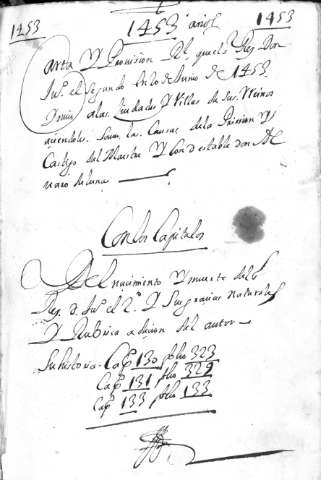 1453 1453 años 1453
Carta Y Provision Del quel Rey Don
Juº el Segundo en 20 de Junio de 1453
a las Ciudades Y Villas de sus Reinos
las Causas de la Prission Y
Castigo del Maestre Y Condestable don Al
varo de luna
Con los Capitulos
Del nacimiento Y muerte del
Rey. d. Juº el 2º Y sus gracias naturales
Y del autor
Su historia. Cap 130 folio 323
Cap 131 folio 329
Cap 133 folio 133